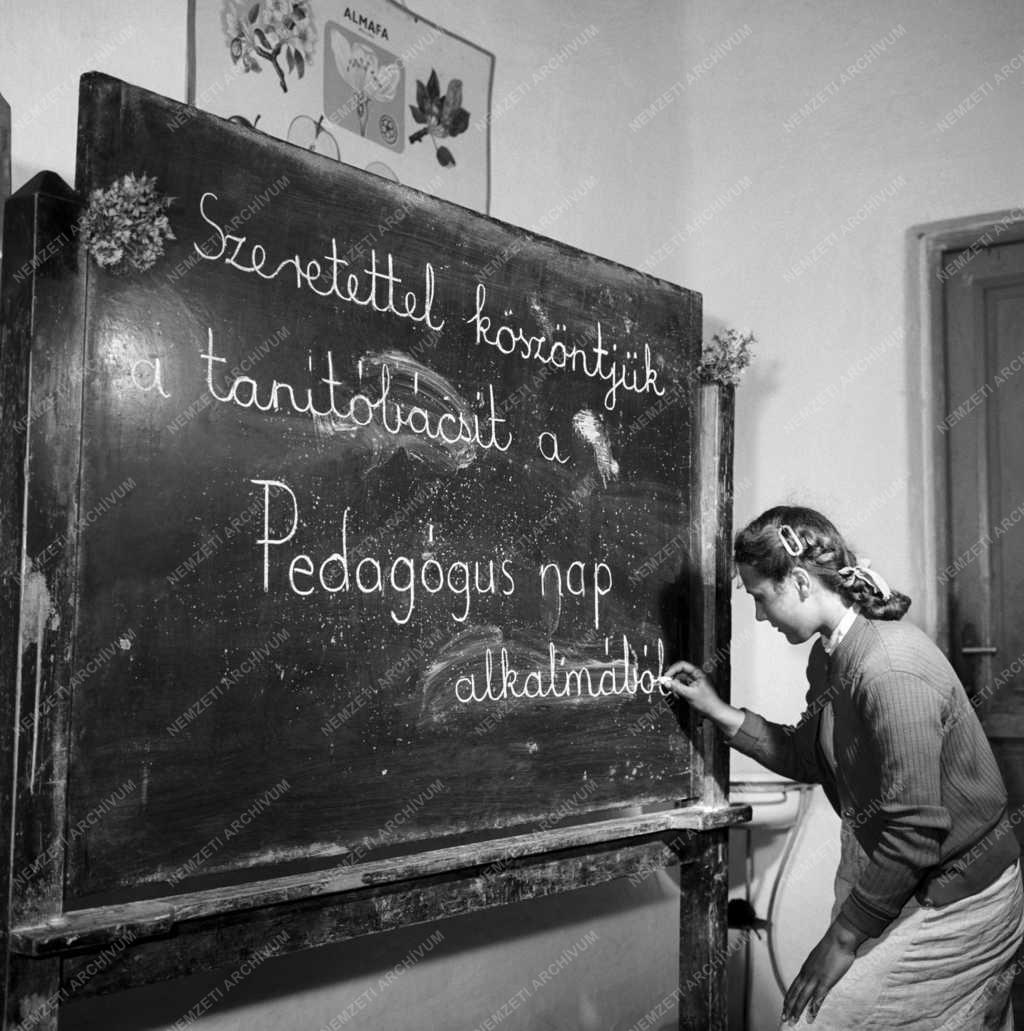 ALMAFA
Szeretettel köszöntjük
a tanítóbácsit a
Pedagógus nap
alkalmából
NEMZETI ARCHÍVUM